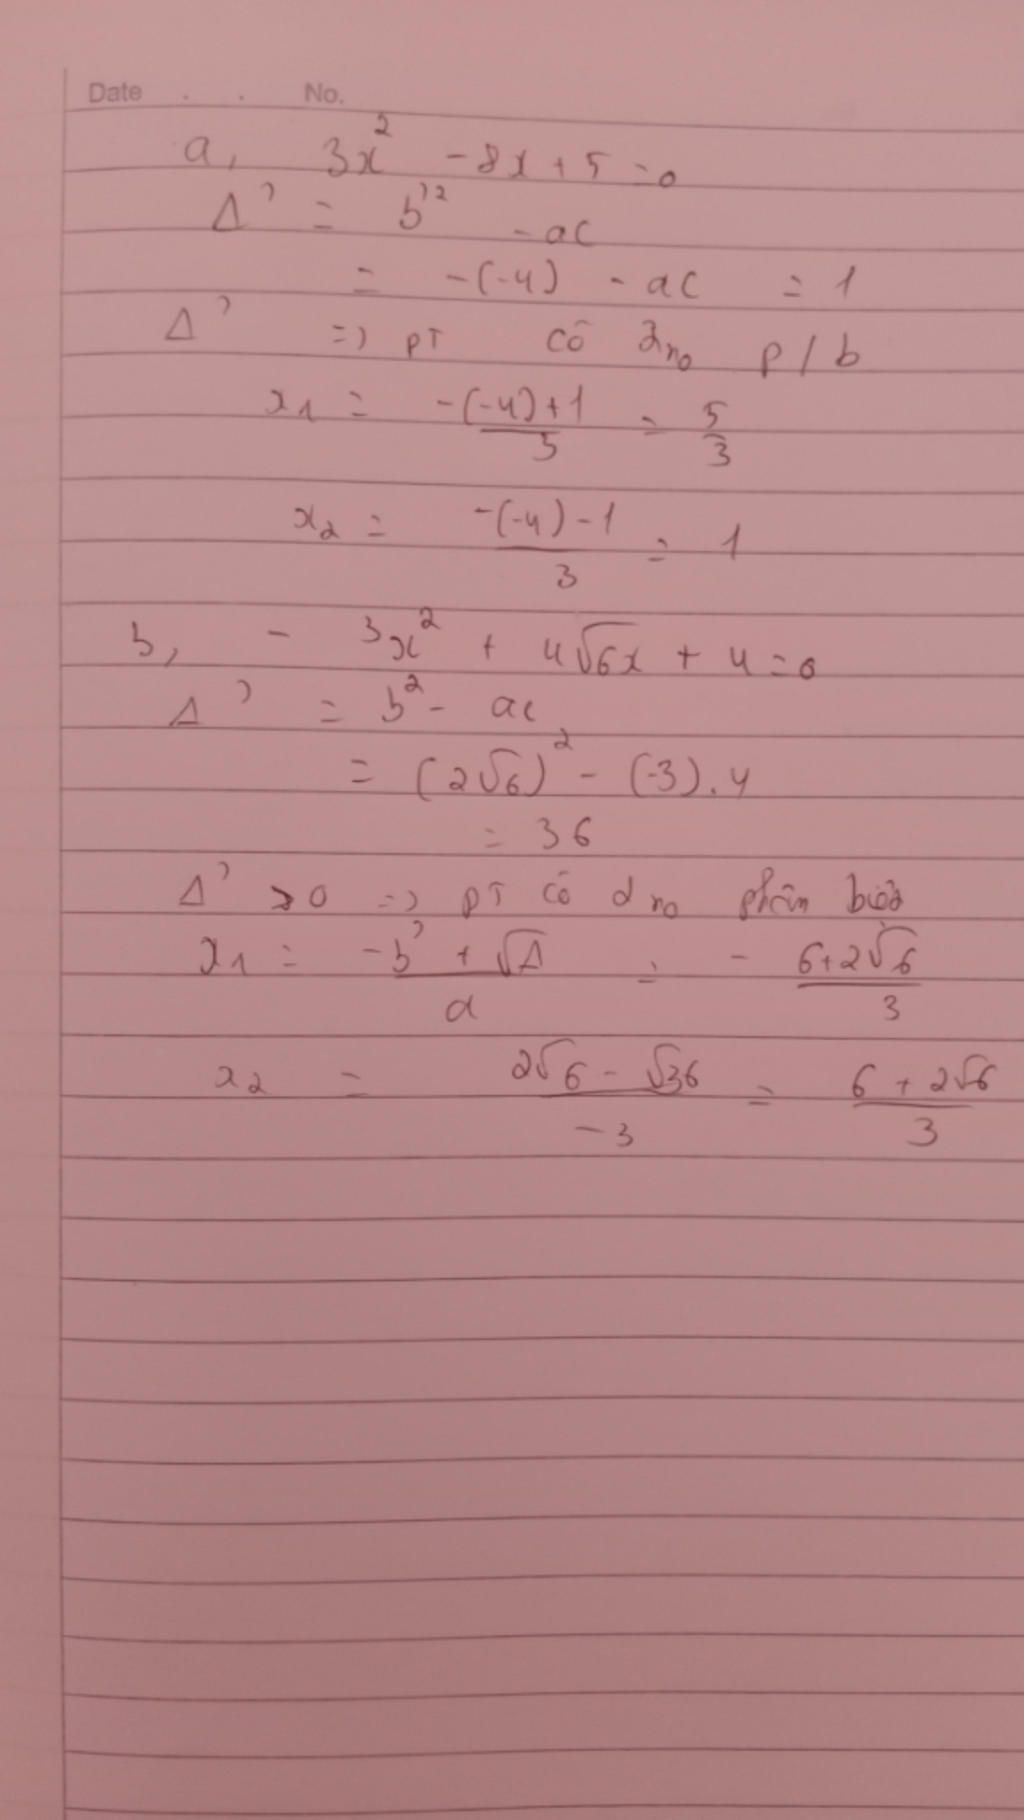 Date . . No.
a, 3x² - 8x + 5 = 0
Δ' = b'² - ac
= -(-4) - ac = 1
Δ' => pT có 2 no p/b
x₁ = (-(-4)+1)/3 = 5/3
x₂ = (-(-4)-1)/3 = 1
b, - 3x² + 4√6x + 4 = 0
Δ' = b² - ac
= (2√6)² - (-3).4
= 36
Δ' > 0 => pT có 2 no phân biệt
x₁ = (-b' + √Δ)/a = - (6+2√6)/3
x₂ = (2√6 - √36)/-3 = (6 + 2√6)/3